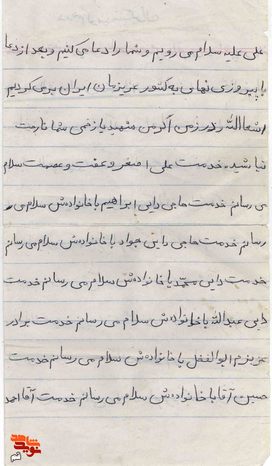 علی علیه سلام می رویم و شما را دعا می کنیم و بعد از دعا
با پیروزی نهای به کشور عزیزمان ایران بر می گردیم
انشاالله در زمن اگر من شهید یا زخمی شدم ناراحت
نباشید، خدمت علی اصغر و عفت و عصمت سلام
می رسانم خدمت حاجی دایی ابراهیم با خانواده ش سلام می
رسانم خدمت حاجی دایی جواد با خانواده ش سلام می رسانم
خدمت دایی محمد با خانواده ش سلام می رسانم خدمت
دایی عبدالله با خانواده ش سلام می رسانم خدمت برادر
عزیزم ابوالفضل با خانواده ش سلام می رسانم خدمت
حسین آقا با خانواده ش سلام می رسانم خدمت آقا احمد
نوید شاهد
قم